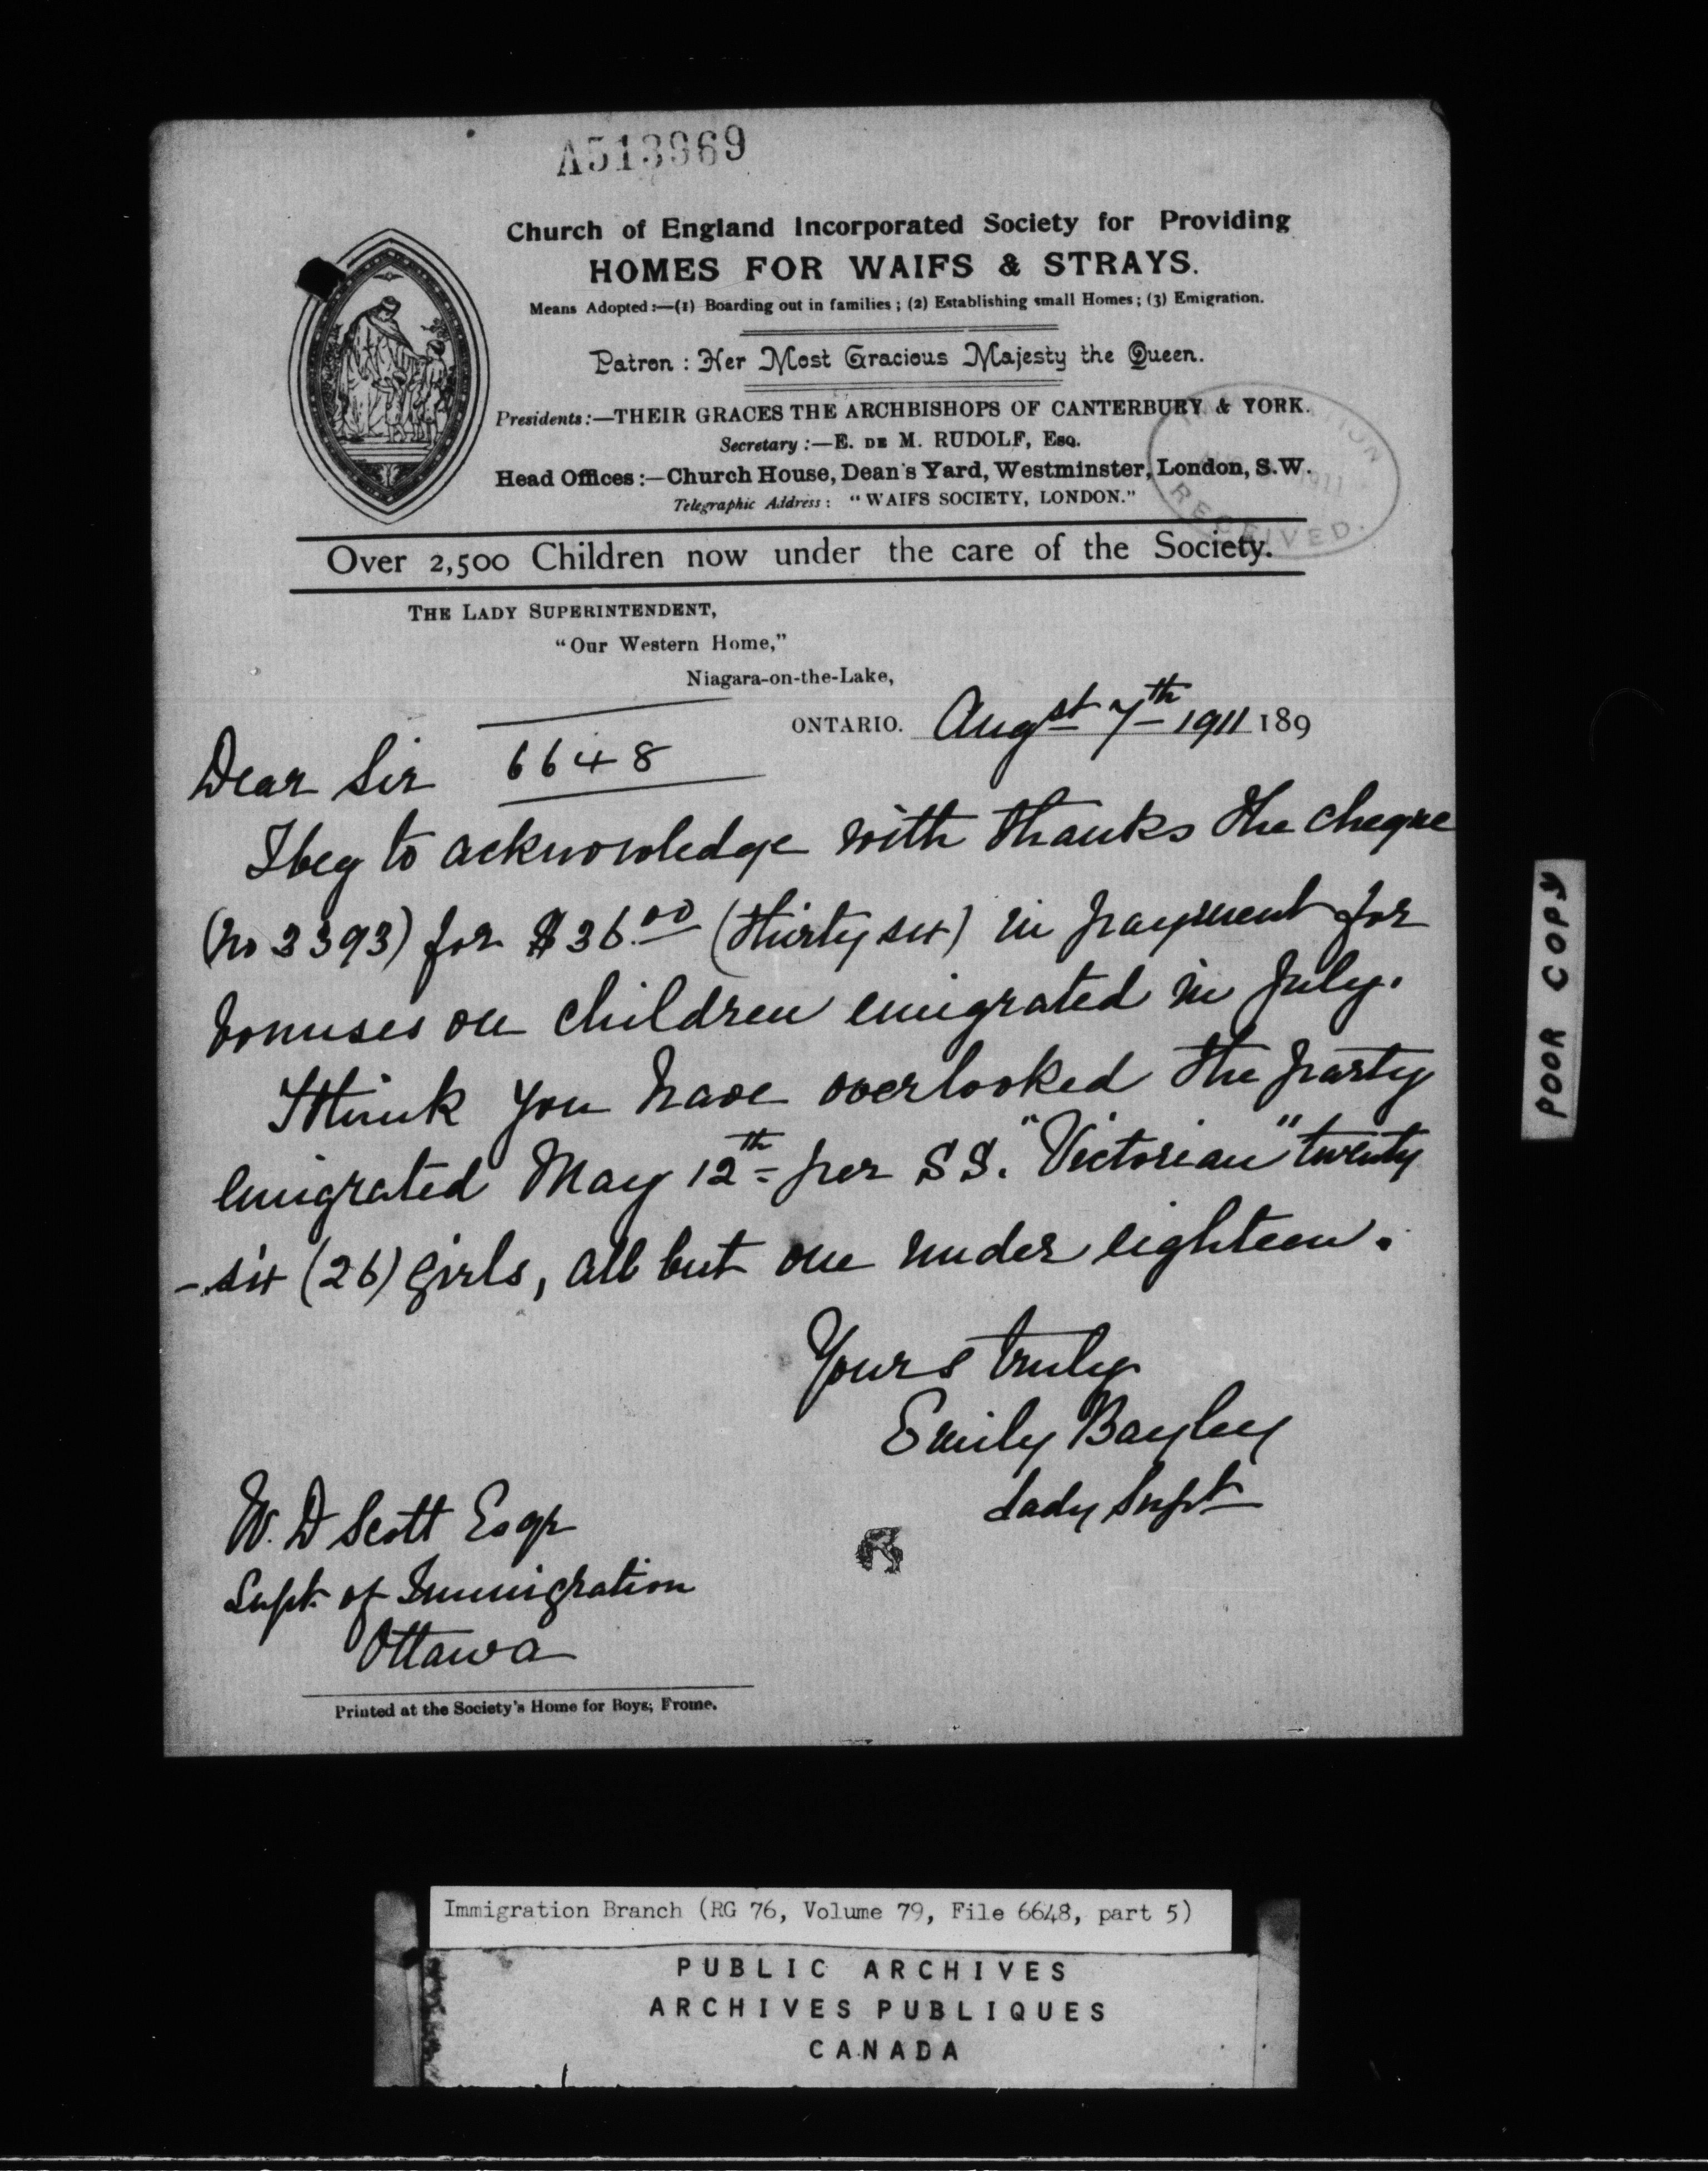 A513969
Church of England Incorporated Society for Providing
HOMES FOR WAIFS & STRAYS.
Means Adopted:—(1) Boarding out in families; (2) Establishing small Homes; (3) Emigration.
Patron: Her Most Gracious Majesty the Queen.
Presidents:—THEIR GRACES THE ARCHBISHOPS OF CANTERBURY & YORK.
Secretary:—E. DE M. RUDOLF, ESQ.
Head Offices:—Church House, Dean's Yard, Westminster, London, S.W.
Telegraphic Address: "WAIFS SOCIETY, LONDON."
1911
RECEIVED.
Over 2,500 Children now under the care of the Society.
THE LADY SUPERINTENDENT,
"Our Western Home,"
Niagara-on-the-Lake,
ONTARIO. Augst 7th 1911 189
6648
Dear Sir
I beg to acknowledge with thanks the cheque
(No 3393) for $36.00 (thirty six) in payment for
bonuses on children emigrated in July.
I think you have overlooked the party
emigrated May 12th per SS. "Victorian" twenty
-six (26) girls, all but one under eighteen.
Yours truly
Emily Bayley
Lady Supt
W. D Scott Esqr
Supt of Immigration
Ottawa
Printed at the Society's Home for Boys, Frome.
POOR COPY
Immigration Branch (RG 76, Volume 79, File 6648, part 5)
PUBLIC ARCHIVES
ARCHIVES PUBLIQUES
CANADA